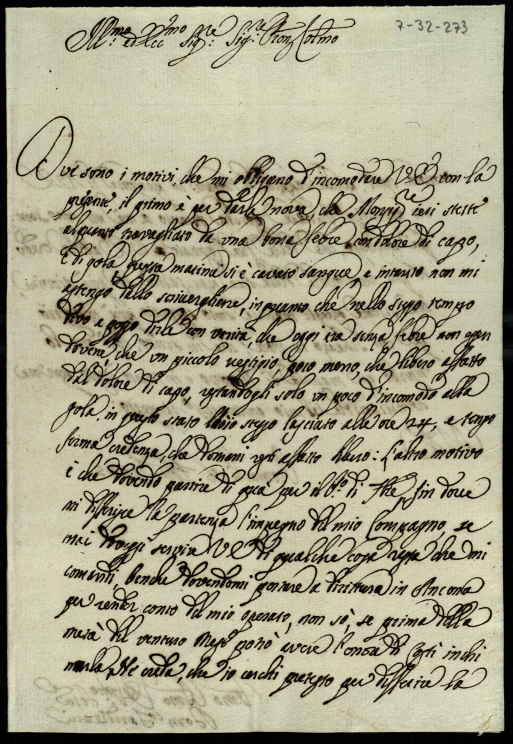 7-32-273
Ill.mo ed Ecc.mo Sig.re Sig.re Pron Col.mo
Due sono i motivi, che mi obligano d'incomodare V.E. con la
presente, il primo è per darle nova, che Monsig.re ieri stette
alquanto travagliato da una bona febre, con dolore di capo,
e di gola, questa matina si è cavato sangue, e intanto non mi
astengo dallo scrivergliene, inquanto che nello stesso tempo
devo e posso dirle con verità che oggi sta senza febre non essen
dovene, che un piccolo vestigio, poco meno, che libero affatto
dal dolore di capo, restandogli solo un poco d'incomodo alla
gola, in questo stato l'ho io stesso lasciato alle ore 24, e tengo
ferma credenza, che domani resti affatto libero: L'altro motivo
è che dovendo partire di quà per il di fin dove
mi differisce la partenza l'impegno del mio Compagno, se
mai dovessi servire V.E. di qualche cosa resta che mi
comandi, benche dovendomi portare a dirittura in Ancona
per render conto del mio operato, non sò, se prima della
metà del venturo Mese potrò avere l'onore di inchi
narla, Ne creda, che io cerchi pretesto per differire la